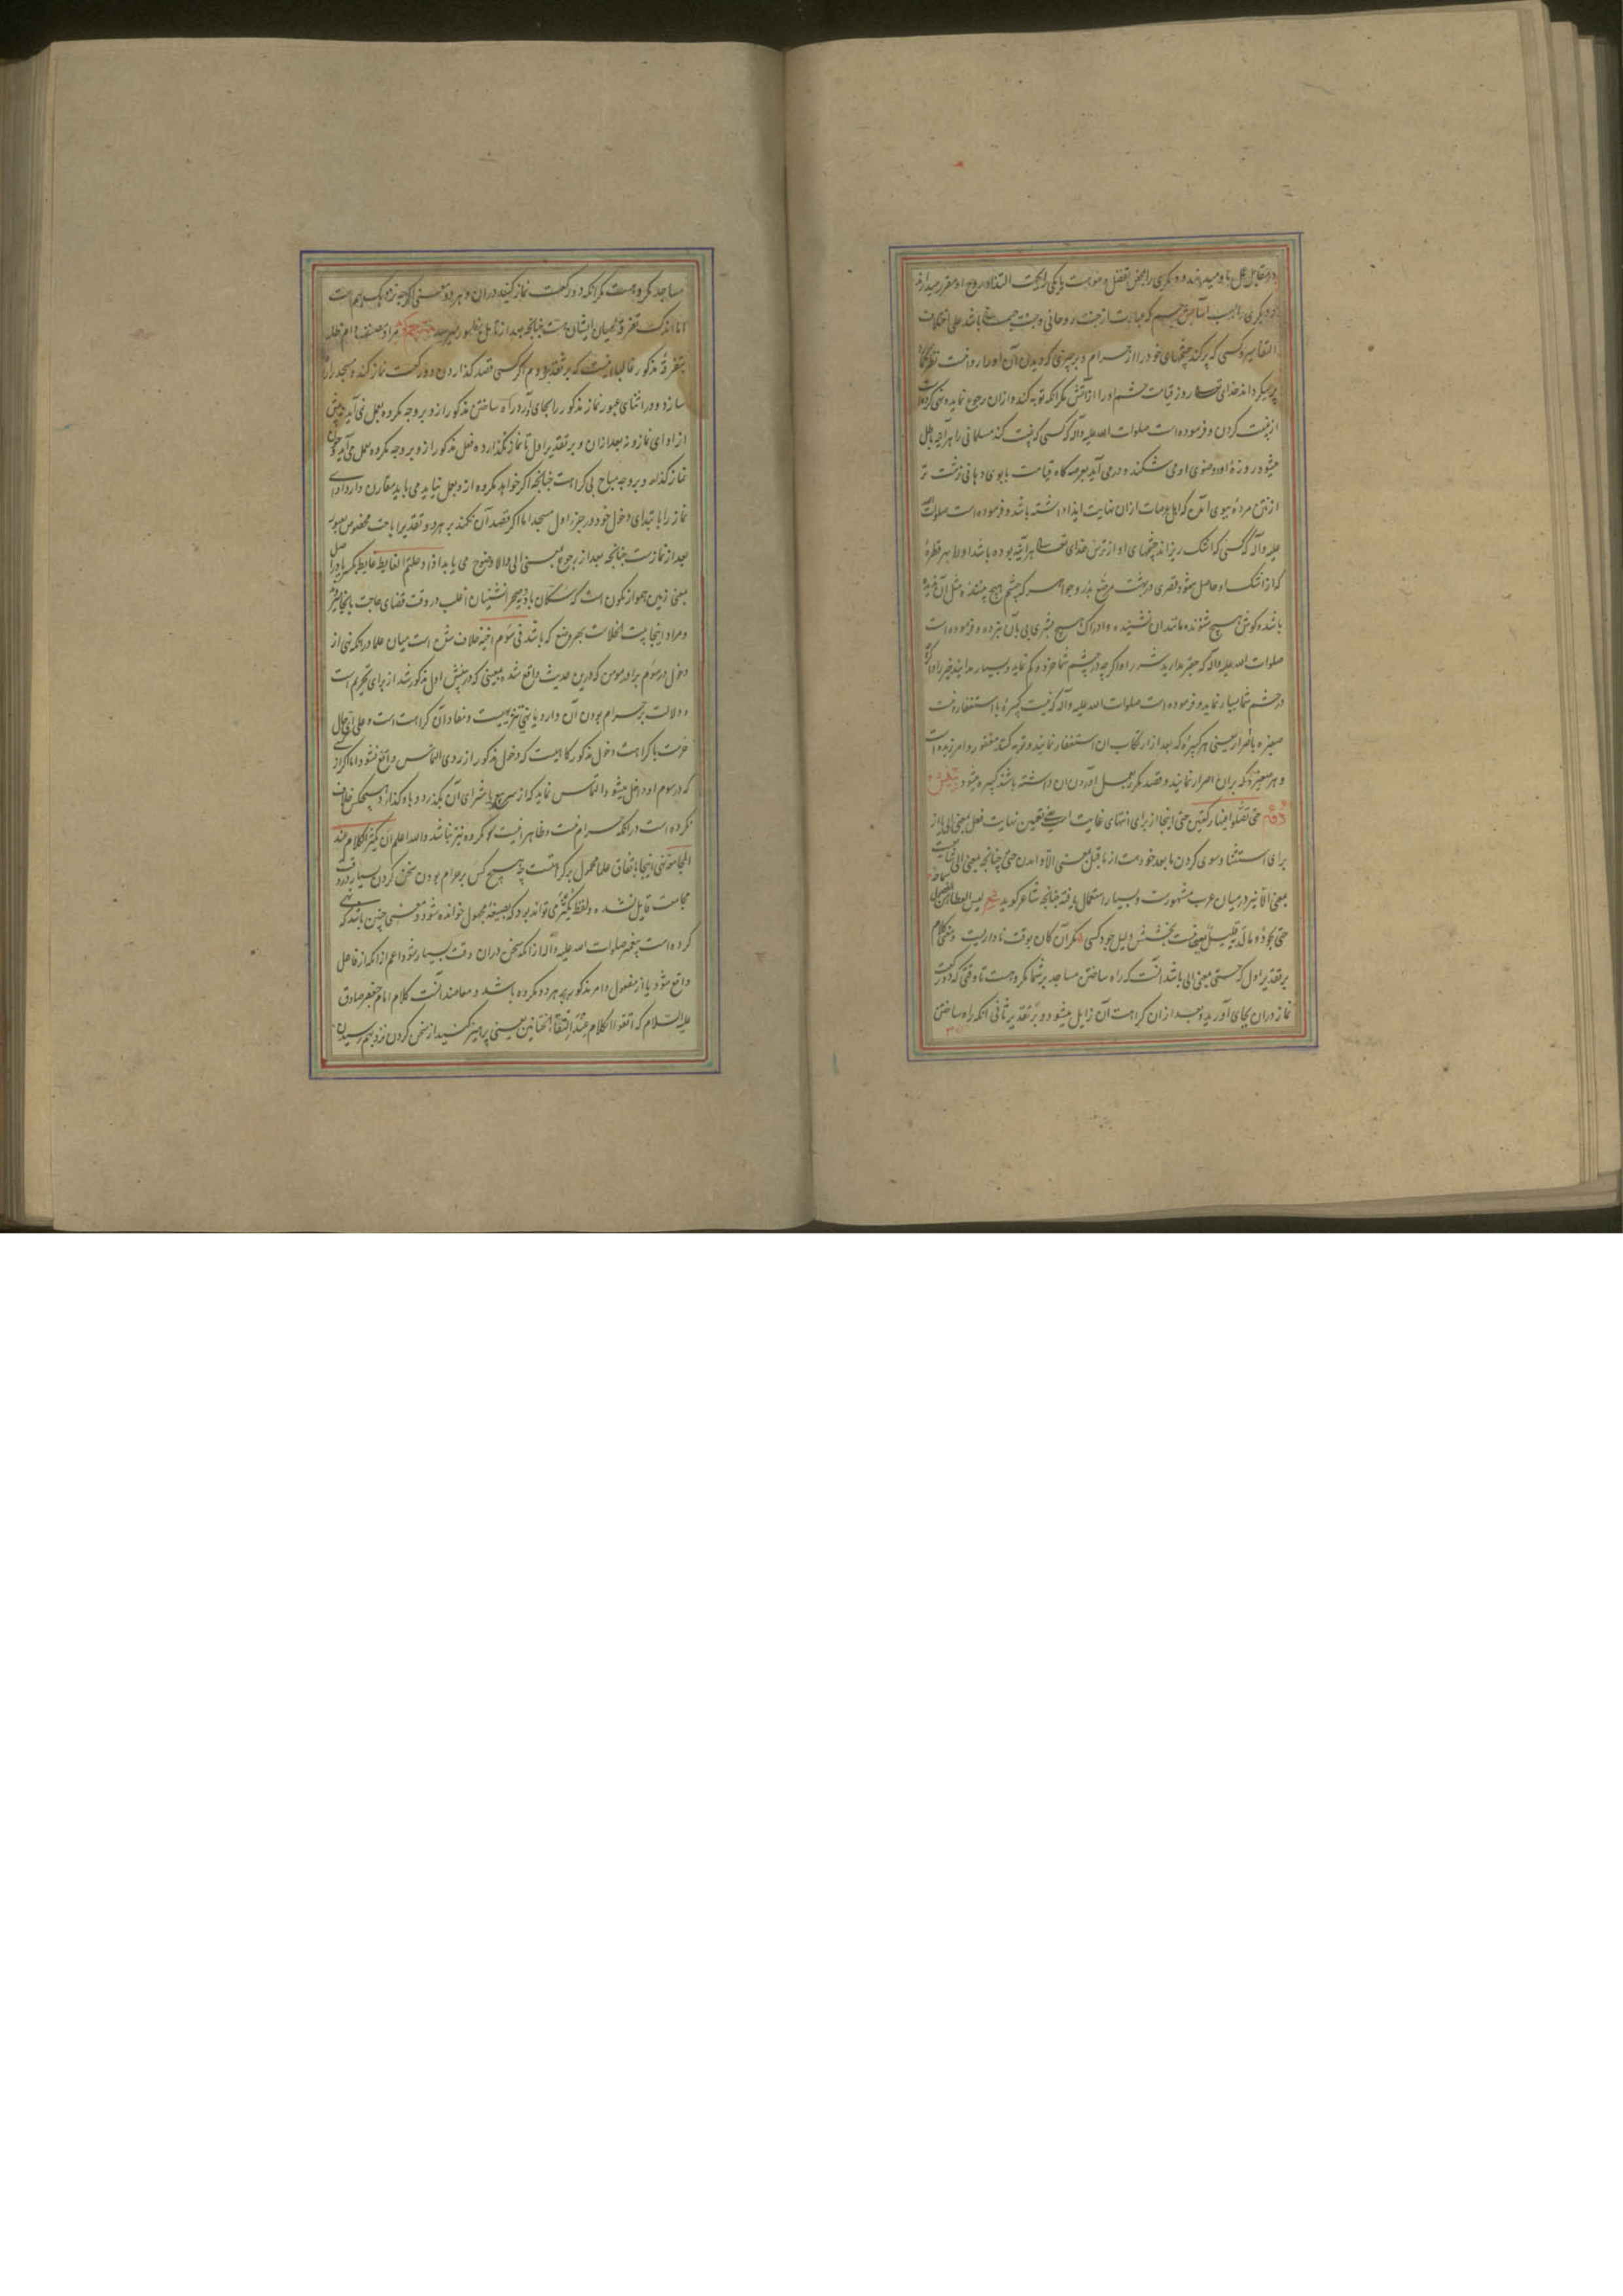 در مقابل عمل باو میدهند و دیگری را بمحض تفضل و موهبت یا یکی را بجهت التذاذ روح او مقرر میدارند
و دیگری را بسبب آسایش جسم که عبارت از جنت روحانی و جنت جسمانی باشد علی اختلاف
التفاسیر و کسی که پر کند چشمهای خود را از حرام و بر چیزی که دیدن آن او را روا نیست نظر
پر میگرداند خدای تعالی روز قیامت چشم او را از آتش مگر انکه توبه کند و ازان رجوع نماید و نهی کرده است
از غیبت کردن و فرموده است صلوات الله علیه و آله که کسی که غیبت کند مسلمانی را هر آینه باطل
میشود روزهٔ او و وضوی او می شکند و در می آید بعرصه کاه قیامت با بوی دهانی زشت تر
از نتن مردهٔ ببوی آن که اهل عرصات ازان نهایت ایذا داشته باشد و فرموده است صلوات الله
علیه و آله که کسی که اشک ریزاند چشمهای او از ترس خدای تعالی هر آینه بوده باشد او را بهر قطرهٔ
که از اشک او حاصل میشود قصری در بهشت مرصع بدر و جواهر که چشم هیچ بینندهٔ مثل آن ندیده
باشد و کوش هیچ شنونده مانند ان نشنیده و ادراک هیچ بشری پی بآن نبرده و فرموده است
صلوات الله علیه و آله که حقیر مدارید شر را و اگر چه در چشم شما خرد و کم نماید و بسیار مدانید خیر را و اگر چه
در چشم شما بسیار نماید و فرموده است صلوات الله علیه و آله که نیست کبیرهٔ با استغفار و نیست
صغیره با اصرار یعنی هر کبیرهٔ که بعد از ارتکاب ان استغفار نمایند و توبه کنند مغفور و امرزیده است
و هر صغیرهٔ که بران اصرار نمایند و قصد مکرر بعمل اوردن ان داشته باشند کبیره میشود
حتی تصلوا فیها رکعتین حتی اینجا از برای انتهای غایت است یعنی تعیین نهایت فعل بمعنی الی یا از
برای استثنا و سوی کردن ما بعد خود است از ما قبل بمعنی الا و امدن حتی چنانچه بمعنی الی
بمعنی الا نیز در میان عرب مشهورست و بسیار استعمال یافته چنانچه شاعر کوید شعر لیس العطاء من الفضول سماحة
حتی تجود و ما لدیک قلیل یعنی نیست بخشش دلیل جود کسی مکر آن کان بوقت ناداریست و معنی کلام
بر تقدیر اول که حتی بمعنی الی باشد انست که راه ساختن مساجد بر شما مکروهست تا وقتی که دو رکعت
نماز دران بجای آورید و بعد ازان کراهت آن زایل میشود و بر تقدیر ثانی انکه راه ساختن
مساجد مکروهست مکر انکه دو رکعت نماز کنید دران و هر دو معنی اکرچه نزدیک بهم است
اما اندک تفرقهٔ میان ایشان هست چنانچه بعد از تامل بظهور میرسد
بتفرقهٔ مذکور قالبا اینست که بر تقدیر دوم اکر کسی قصد کذاردن دو رکعت نماز کند و مسجد راه
سازد و در اثنای عبور نماز مذکور را بجای آورد راه ساختن مذکور از و بر وجه مکروه بعمل نمی آید نه پیش
از ادای نماز و نه بعد ازان و بر تقدیر اول تا نماز نکذارده فعل مذکور از و بر وجه مکروه بعمل می آید و چون
نماز کذارد بر وجه مباح بی کراهت چنانچه اکر خواهد مکروه از و بعمل نیاید می باید مقارن دارد ادای
نماز را با بتدای دخول خود در جزو اول مسجد اما اکر قصد آن نکند بر هر دو تقدیر اباحت مخصوص بعبور
بعد از نمازست چنانچه بعد از رجوع بمعنی الی و الا وضوح می یابد اذا دخلتم الغایط غایط بکسر یا در اصل
بمعنی زمین هموار نکون است که سکان بادیه و صحرا نشینان اغلب در وقت قضای حاجت بانجا میروند
و مراد اینجا بیت الخلاست بهر وضع که باشد فی سوم اخیه خلاف است میان علما در انکه نهی از
دخول در سوم برادر مومن که درین حدیث واقع شده بمعنی که در پیش اول مذکور شد از برای تحریم است
و دلالت بر حرام بودن آن دارد یا نهی تنزیهیست و مفاد آن کراهت است و علی ای حال
حرمت یا کراهت دخول مذکور کاهیست که دخول مذکور از روی التماس واقع نشود اما اکر از کسی
که در سوم او داخل میشود التماس نماید که از سر بیع یا شرای آن بگذرد و باو کذارد هیچکس خلاف
نکرده است در انکه حرام نیست و ظاهر اینست که مکروه نیز نباشد و الله اعلم ان یکثر الکلام عند
المجامعة نهی اینجا باتفاق علما محمول بر کراهتست چه هیچ کس بر حرام بودن سخن کردن بسیار در وقت
مجامعت قایل نشده و لفظ یکثر می تواند بود که بصیغهٔ مجهول خوانده شود و معنی چنین باشد که نهی
کرده است پیغمبر صلوات الله علیه و آله از انکه سخن دران وقت بسیار شود اعم از انکه از فاعل
واقع شود یا از مفعول و امر مذکور بر هر دو مکروه باشد و معاضد انست کلام امام جعفر صادق
علیه السلام که اتقوا الکلام عند التقاء الختانین یعنی پرهیز کنید از سخن کردن نزد بهم رسیدن